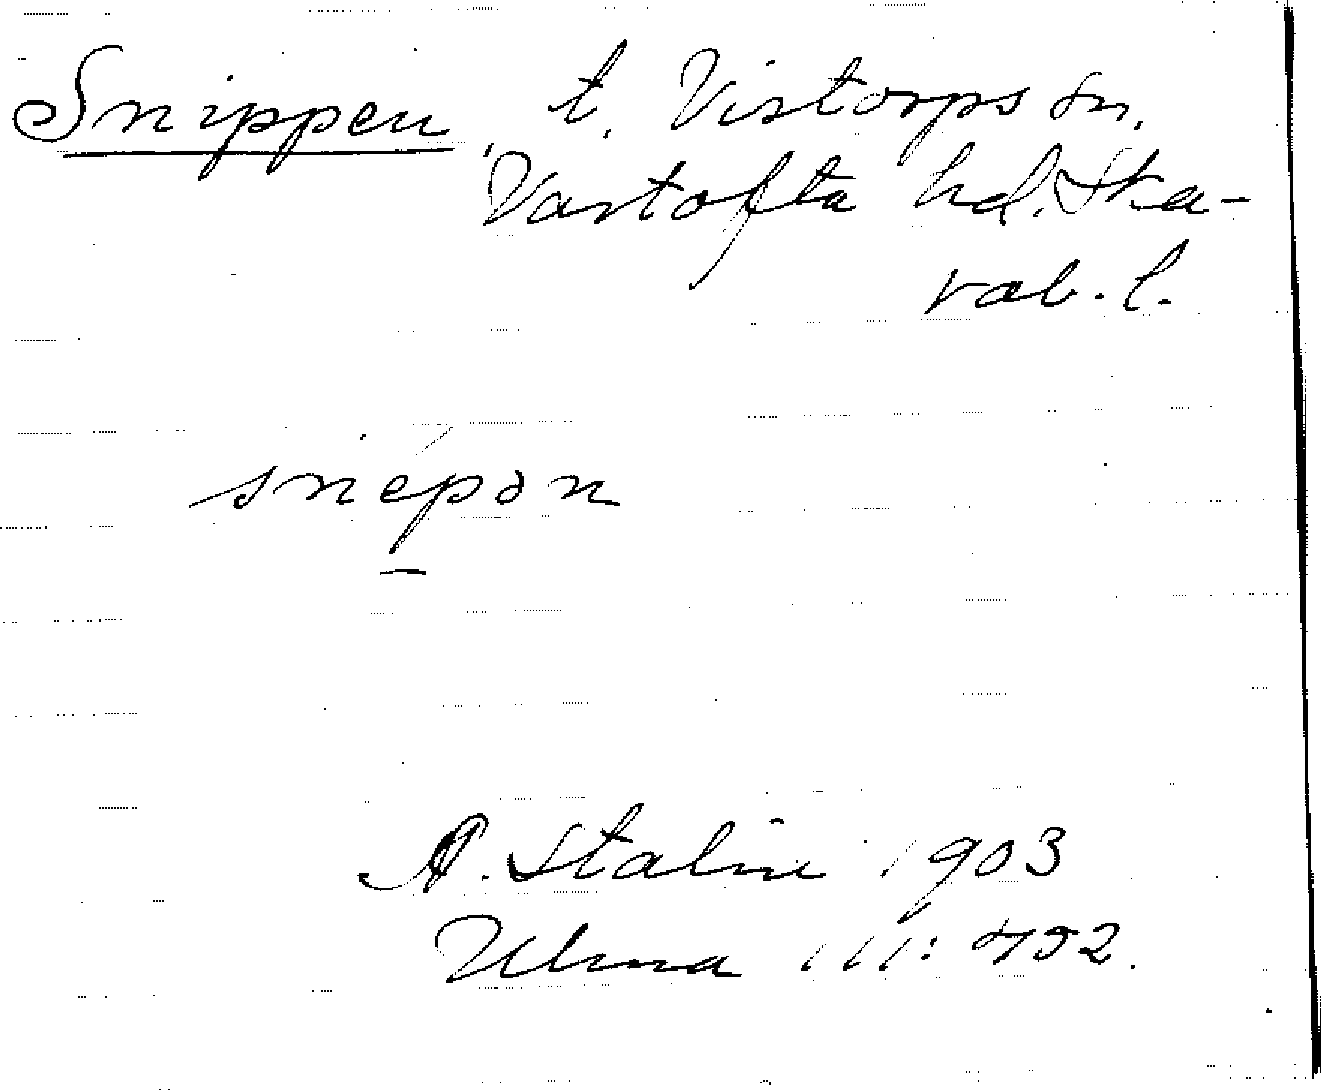 Snippen, t. Vistorps sn,
Vartofta hd. Ska-
rab. l.
snépən
A. Stalin 1903
Ulma 111: 492.